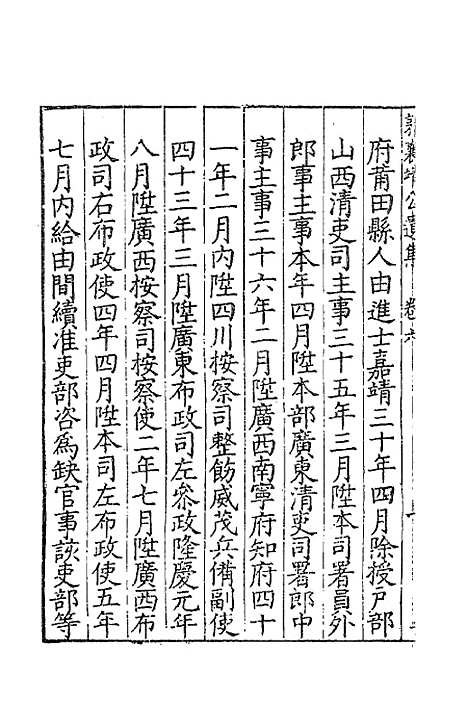 郭襄靖公遺集　卷六
府莆田縣人由進士嘉靖三十年四月除授戸部
山西清吏司主事三十五年三月陞本司署員外
郎事主事本年四月陞本部廣東清吏司署郎中
事主事三十六年二月陞廣西南寧府知府四十
一年二月内陞四川按察司整飭威茂兵備副使
四十三年三月陞廣東布政司左叅政隆慶元年
八月陞廣西按察司按察使二年七月陞廣西布
政司右布政使四年四月陞本司左布政使五年
七月内給由間續准吏部咨爲缺官事該吏部等